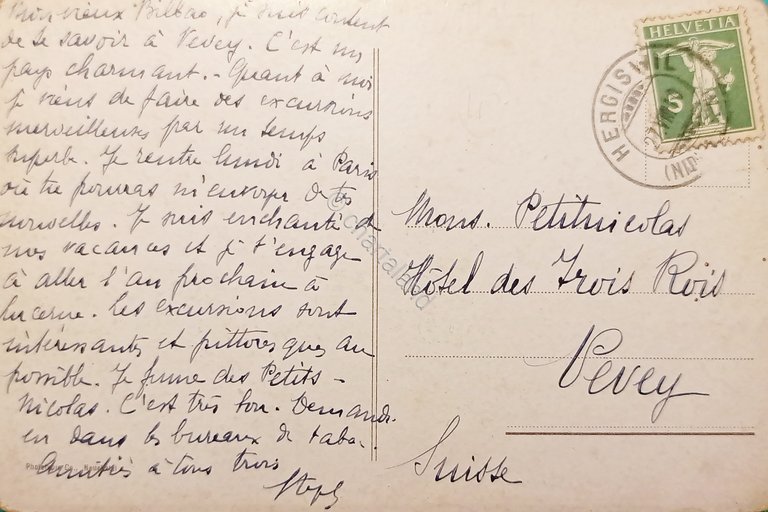 Mon vieux Bilbao, je suis content
de te savoir à Vevey. C'est un
pays charmant. - Quant à moi
je viens de faire des excursions
merveilleuses par un temps
superbe. Je rentre lundi à Paris
où tu pourras m'envoyer de tes
nouvelles. Je suis enchanté de
mes vacances et je t'engage
à aller l'an prochain à
Lucerne. Les excursions sont
intéressantes et pittoresques au
possible. Je fume des Petits-
Nicolas. C'est très bon. Demande-
en dans les bureaux de taba-
Amitiés à tous trois
Steph
HELVETIA
5
HERGISWIL
(NID
Mons. Petitnicolas
Hôtel des Trois Rois
Vevey
Suisse
© chadaland